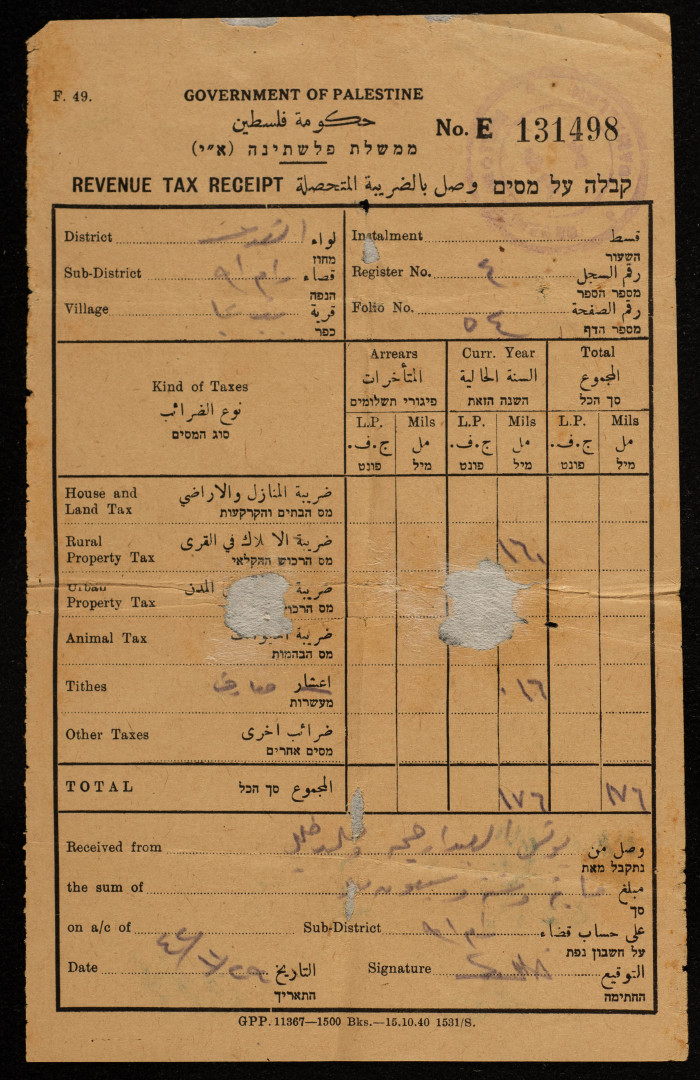 F. 49.
GOVERNMENT OF PALESTINE
حكومة فلسطين
ממשלת פלשתינה (א״י)
No. E 131498
REVENUE TAX RECEIPT وصل بالضريبة المتحصلة קבלה על מסים
District القدس لواء
מחוז
Sub-District رام الله قضاء
הנפה
Village قرية
כפר
Instalment قسط
השעור
Register No. ٤ رقم السجل
מספר הספר
Folio No. ٥٤ رقم الصفحة
מספר הדף
Kind of Taxes
نوع الضرائب
סוג המסים
Arrears Curr. Year Total
المتأخرات السنة الحالية المجموع
פיגורי תשלומים השנה הזאת סך הכל
L.P. Mils L.P. Mils L.P. Mils
ج.ف. مل ج.ف. مل ج.ف. مل
פונט מיל פונט מיל פונט מיל
House and ضريبة المنازل والاراضي
Land Tax מס הבתים והקרקעות
Rural ضريبة الاملاك في القرى
Property Tax מס הרכוש החקלאי
١٦٠
Urban ضريبة المدن
Property Tax מס
Animal Tax ضريبة
מס הבהמות
Tithes معارف اعشار
מעשרות
٠١٦
Other Taxes ضرائب اخرى
מסים אחרים
TOTAL המجموع סך הכל
١٧٦ ١٧٦
Received from وصل من
נתקבל מאת
the sum of مبلغ
סך
on a/c of Sub-District رام الله على حساب قضاء
על חשבון נפת
Date التاريخ
התאריך
Signature التوقيع
החתימה
GPP. 11367—1500 Bks.—15.10.40 1531/S.